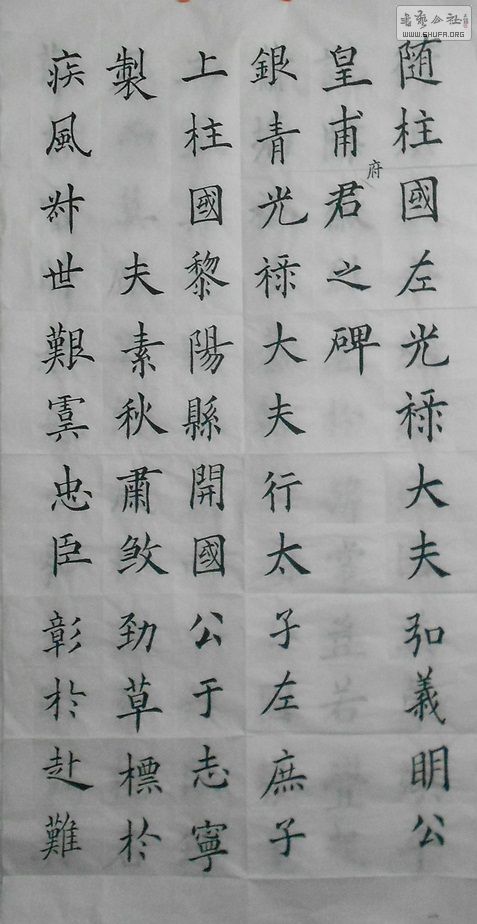 随柱國左光禄大夫弘義明公
皇甫君之碑
府
銀青光禄大夫行太子左庶子
上柱國黎陽縣開國公于志寧
製 夫素秋肅煞勁草標於
疾風叶世艱虞忠臣彰於赴難
書藝公社
WWW.SHUFA.ORG